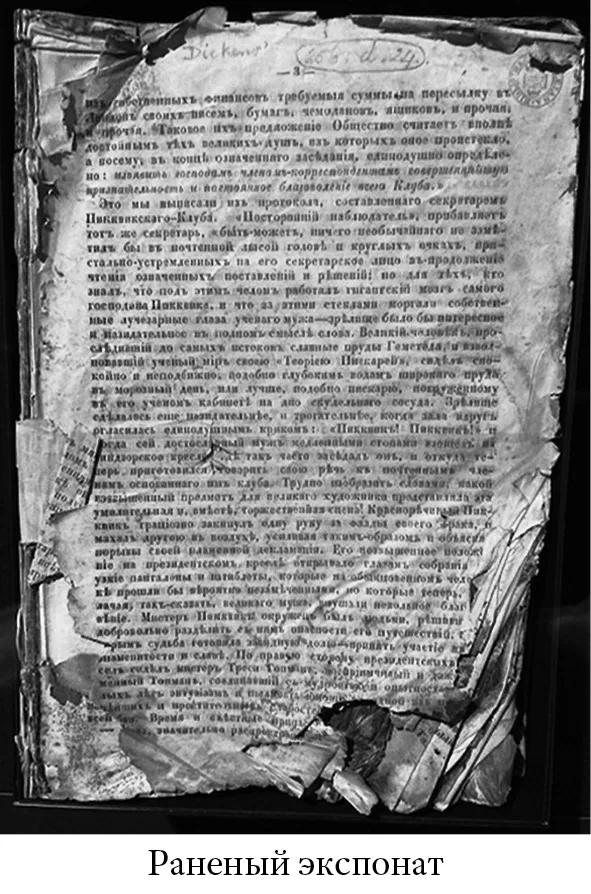 Dickens'
266. d. 24.
— 3 —
изъ собственныхъ финансовъ требуемыя суммы на пересылку въ
Лондонъ своихъ писемъ, бумагъ, чемодановъ, ящиковъ, и прочая,
и прочая. Таковое ихъ предложеніе Общество считаетъ вполнѣ
достойнымъ тѣхъ великихъ душъ, изъ которыхъ оное проистекло,
а посему, въ концѣ означеннаго засѣданія, единодушно опредѣле-
но: изъявить господамъ членамъ-корреспондентамъ совершеннѣйшую
признательность и постоянное благоволеніе всего Клуба.»
Это мы выписали изъ протокола, составленнаго секретаремъ
Пикквикскаго-Клуба. «Посторонній наблюдатель», прибавляетъ
тотъ же секретарь, «быть-можетъ, ничего необычайнаго не замѣ-
тилъ бы въ почтенной лысой головѣ и круглыхъ очкахъ, при-
стально-устремленныхъ на его секретарское лицо въ-продолженіе
чтенія означенныхъ поставленій и рѣшеній; но для тѣхъ, кто
зналъ, что подъ этимъ челомъ работалъ гигантскій мозгъ самого
господина Пикквика, и что за этими стеклами моргали собствен-
ные лучезарные глаза ученаго мужа—зрѣлище было бы интересное
и назидательное въ полномъ смыслѣ слова. Великій человѣкъ, про-
слѣдившій до самыхъ истоковъ славные пруды Гемстеда, и взвол-
новавшій ученый міръ своею «Теоріею Пискарей», сидѣлъ спо-
койно и неподвижно, подобно глубокимъ водамъ широкаго пруда
въ морозный день, или лучше, подобно пискарю, погруженному
въ его ученомъ кабинетѣ на дно скудельнаго сосуда. Зрѣлище
сдѣлалось еще назидательнѣе, и трогательнѣе, когда зала вдругъ
огласилась единодушнымъ крикомъ: «Пикквикъ! Пикквикъ!» и
когда сей достославный мужъ медленными стопами взошелъ на
виндзорское кресло, гдѣ такъ часто засѣдалъ онъ, и откуда те-
перь приготовился говорить свою рѣчь къ почтеннымъ чле-
намъ основаннаго имъ клуба. Трудно изобразить словами, какой
возвышенный предметъ для великаго художника представляла эта
умилительная и, вмѣстѣ, торжественная сцена! Краснорѣчивый Пик-
квикъ граціозно закинулъ одну руку за фалды своего фрака, и
махалъ другою въ воздухѣ, усиливая такимъ-образомъ и объясняя
порывы своей пламенной декламаціи. Его возвышенное полож
ніе на президентскомъ креслѣ открывало глазамъ собранія
узкіе панталоны и штиблеты, которые на обыкновенномъ чело
кѣ прошли бы вѣроятно незамѣченными, но которые теперь,
лачая, такъ-сказать, великаго мужа, внушали невольное благ
вѣніе. Мистеръ Пикквикъ окруженъ былъ мужьми, рѣшивш
добровольно раздѣлить съ нимъ опасности его путешествій, и
рымъ судьба готовила завидную долю—принять участіе въ
знаменитости и славѣ. По правую сторону президентскихъ
селъ сидѣлъ мистеръ Треси Топманъ,
менный Топманъ, соединявшій съ мудростью и опытностью
лыхъ лѣтъ энтузіазмъ и пылкость
и простительной
всей Время и
значительно
Раненый экспонат